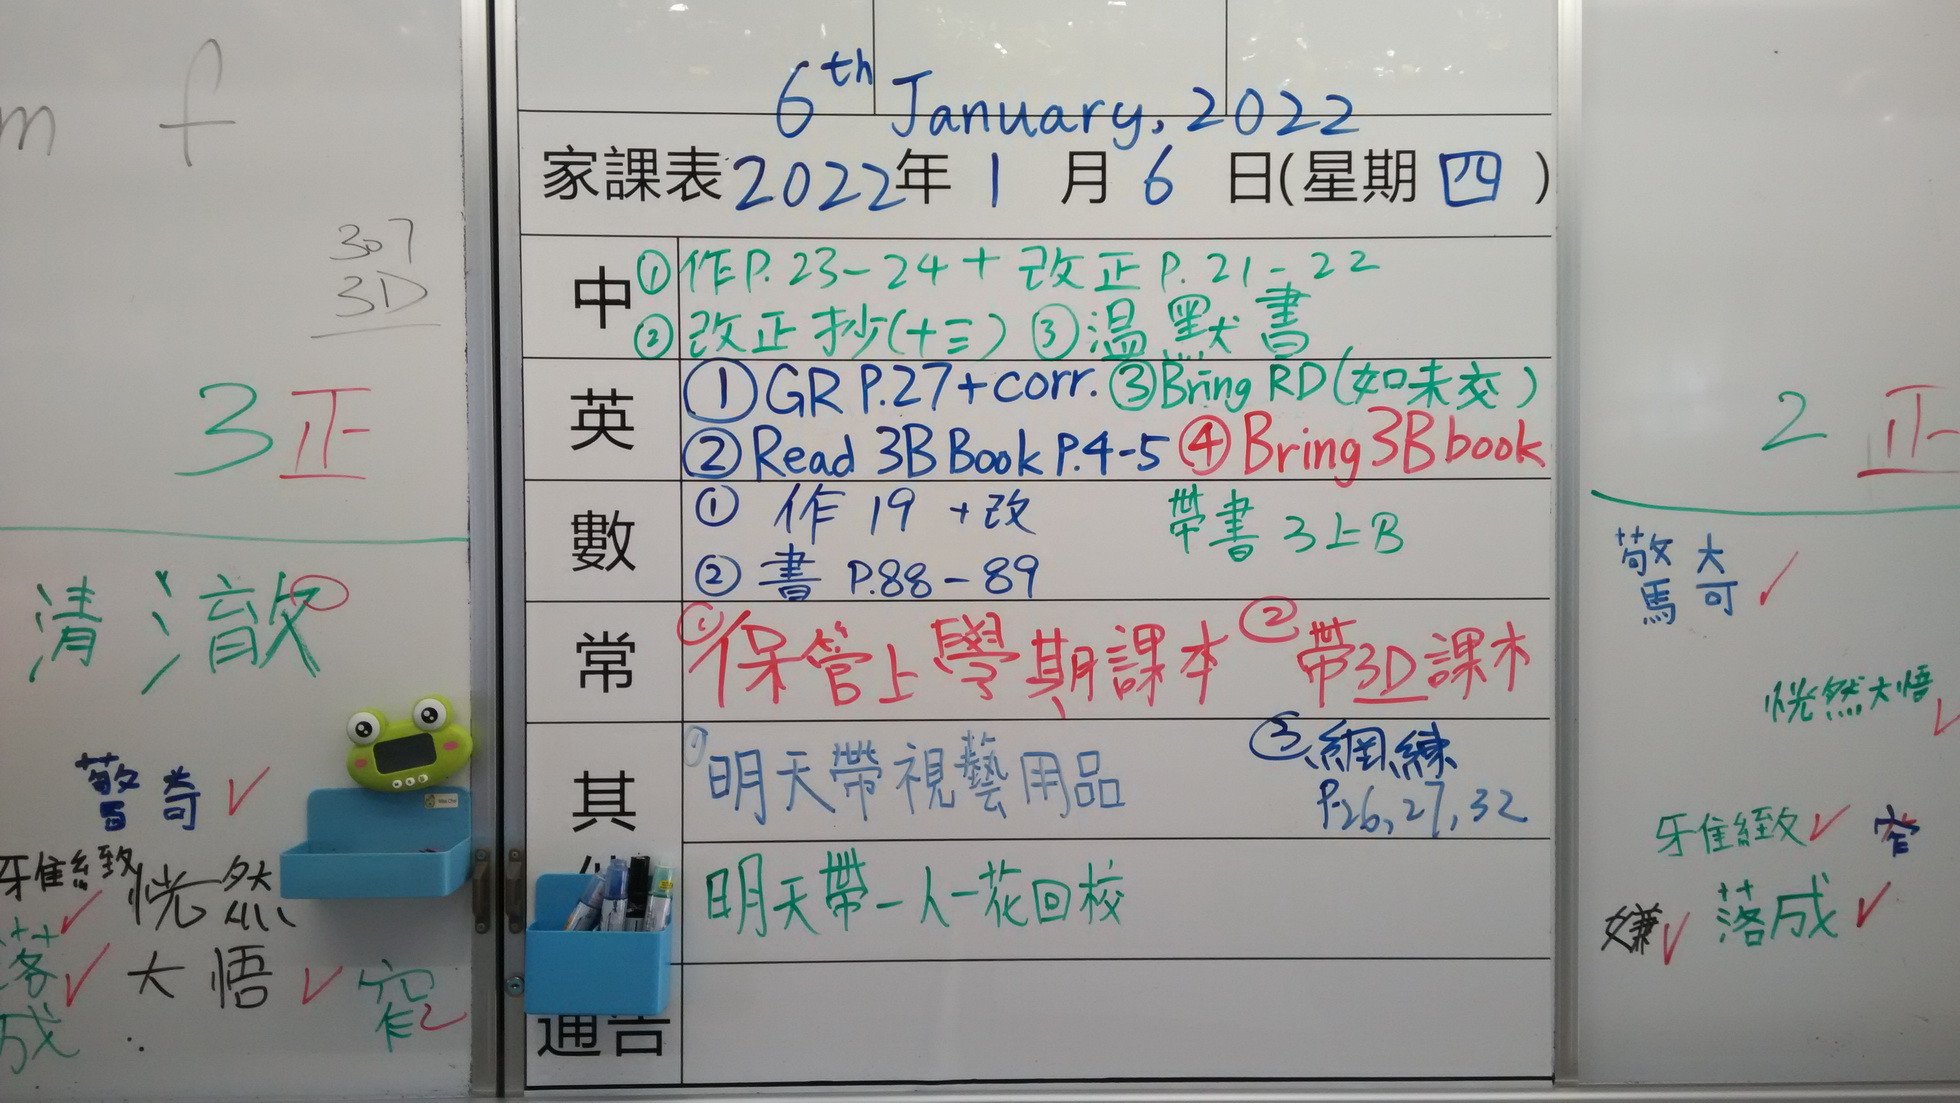 m f
307
3D
3正
清澈
驚奇
牙隹緻
恍然
大悟
落成
窄
6th January, 2022
家課表 2022年 1 月 6 日(星期 四 )
中
①作P.23-24+改正P.21-22
②改正抄(十三) ③溫默書
英
①GR P.27+corr. ③Bring RD(如未交)
②Read 3B Book P.4-5 ④Bring 3B book
數
① 作 19 +改 帶書 3上B
② 書 P.88-89
常
①保管上學期課本 ②帶3D課本
其
①明天帶視藝用品 ③網練
P.26,27,32
明天帶一人一花回校
通告
2 正
驚大可
恍然大悟
牙隹緻 窄
嫌 落成